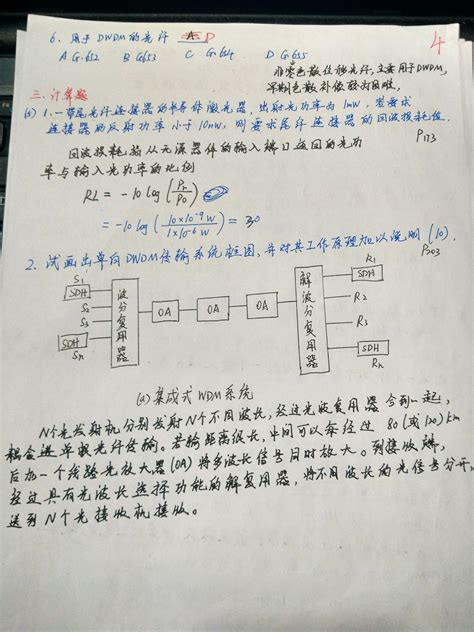 6. 用于DWDM的光纤 A D
4
A G.652 B G.653 C G.654 D G.655
非零色散位移光纤,主要用于DWDM,
三. 计算题
(5) 1. 一带尾光纤连接器的半导体激光器,出射光功率为1mW,若要求
连接器的反射功率小于10nW,则要求尾纤连接器的回波损耗值.
P173
回波损耗指从无源器件的输入端口返回的光功
率与输入光功率的比例
RL = -10 log (Pr/P0)
= -10 log (10×10⁻⁹W/1×10⁻⁶W) = 30
2. 试画出单向DWDM传输系统框图,并对其工作原理加以说明(10).
P203
S1 SDH
S2
S3
SDH Sn
波分复用器
OA OA OA
解波分复用器
R1 SDH
R2
R3
SDH Rn
(a) 集成式WDM系统
N个光发射机分别发射N个不同波长,经过光波复用器合到一起,
耦合进单根光纤传输。若输距离很长,中间可以每经过80(或120)km
后加一个线路光放大器(OA)将多波长信号同时放大。到接收端,
经过具有光波长选择功能的解复用器,将不同波长的光信号分开,
送到N个光接收机接收。